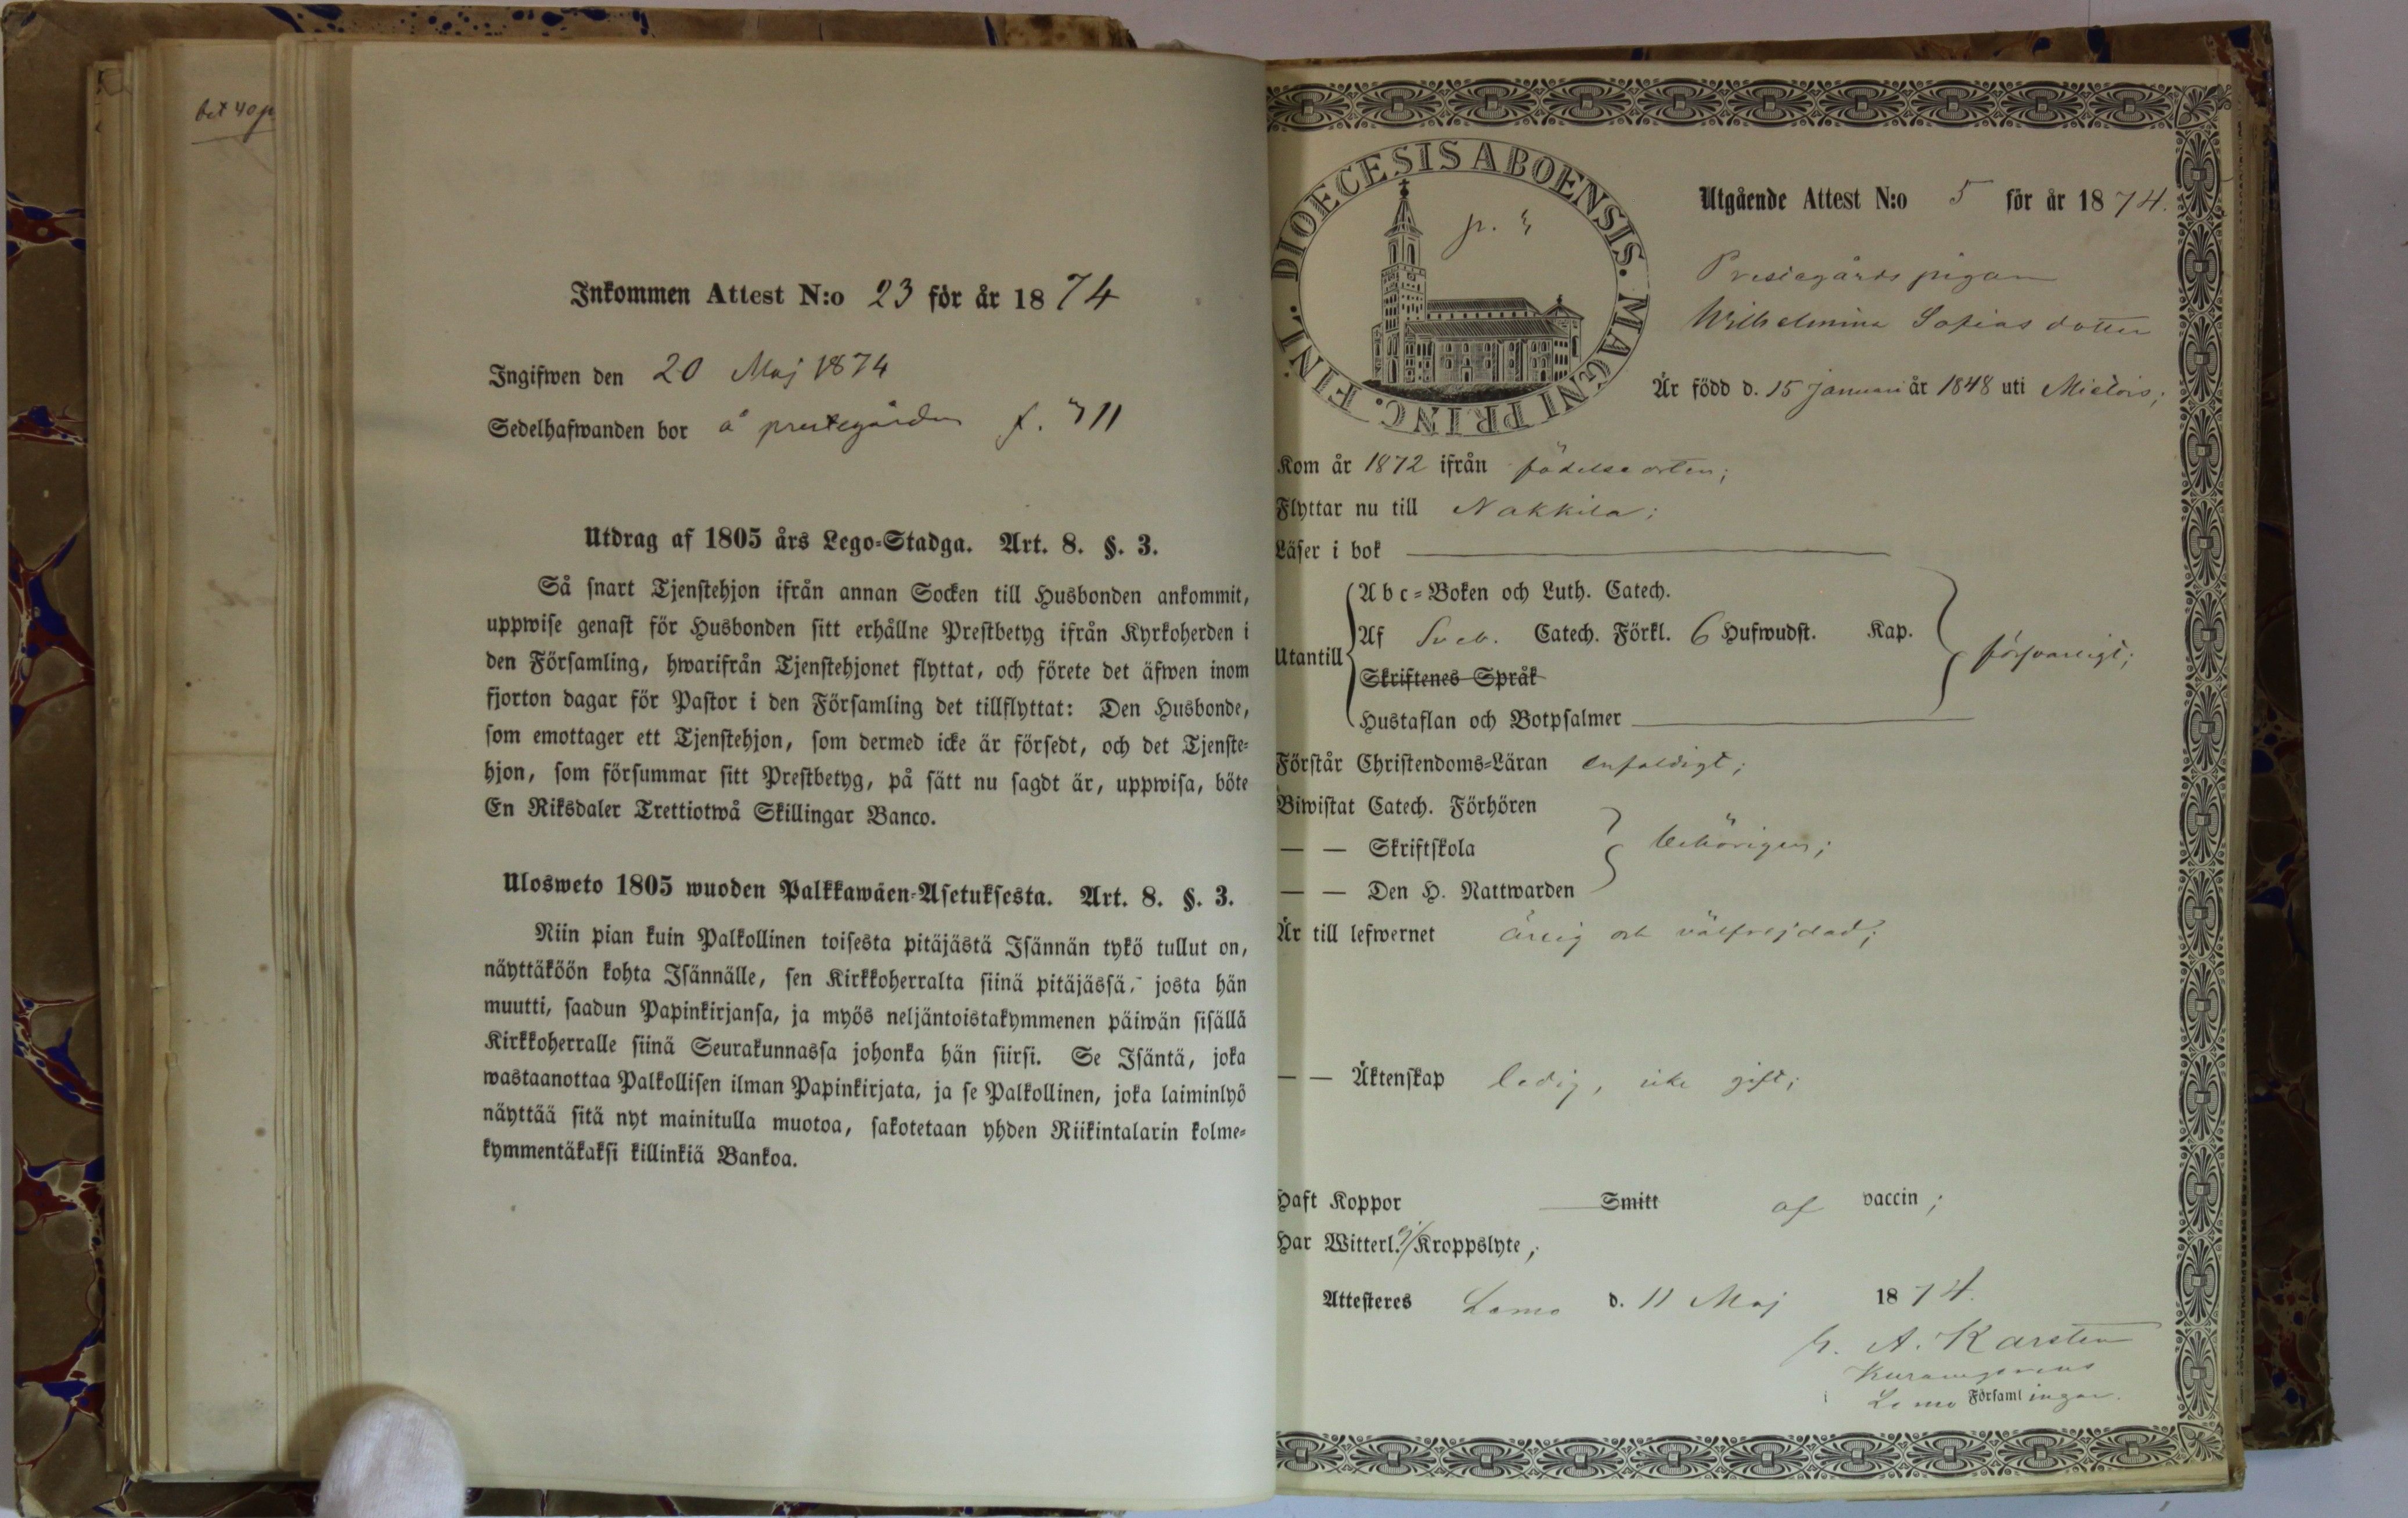 bet 40 p
Inkommen Attest N:o 23 för år 1874
Ingifwen den 20 Maj 1874
Sedelhafwanden bor å prestegården f. 711
Utdrag af 1805 års Lego-Stadga. Art. 8. §. 3.
Så snart Tjenstehjon ifrån annan Socken till Husbonden ankommit,
uppwise genast för Husbonden sitt erhållne Prestbetyg ifrån Kyrkoherden i
den Församling, hwarifrån Tjenstehjonet flyttat, och förete det äfwen inom
fjorton dagar för Pastor i den Församling det tillflyttat: Den Husbonde,
som emottager ett Tjenstehjon, som dermed icke är försedt, och det Tjenste-
hjon, som försummar sitt Prestbetyg, på sätt nu sagdt är, uppwisa, böte
En Riksdaler Trettiotwå Skillingar Banco.
Ulosweto 1805 wuoden Palkkawäen-Asetuksesta. Art. 8. §. 3.
Niin pian kuin Palkollinen toisesta pitäjästä Isännän tykö tullut on,
näyttäköön kohta Isännälle, sen Kirkkoherralta siinä pitäjässä, josta hän
muutti, saadun Papinkirjansa, ja myös neljäntoistakymmenen päiwän sisällä
Kirkkoherralle siinä Seurakunnassa johonka hän siirsi. Se Isäntä, joka
wastaanottaa Palkollisen ilman Papinkirjata, ja se Palkollinen, joka laiminlyö
näyttää sitä nyt mainitulla muotoa, sakotetaan yhden Riikintalarin kolme-
kymmentäkaksi killinkiä Bankoa.
DIOECESIS ABOENSIS. MAGNI PRINC. FINL.
Utgående Attest N:o 5 för år 1874.
Prestegårds pigan
Wilhelmina Sofias dotter
Är född d. 15 Januari år 1848 uti Mietois;
Kom år 1872 ifrån födelseorten;
Flyttar nu till Nakkila;
Läser i bok
Abc-Boken och Luth. Catech.
Utantill Af Sveb. Catech. Förkl. 6 Hufwudst. Kap. försvarligt;
Skriftenes Språk
Hustaflan och Botpsalmer
Förstår Christendoms-Läran enfaldigt;
Biwistat Catech. Förhören
— — Skriftskola behörigen;
— — Den H. Nattwarden
Är till lefwernet ärlig och välfrejdad;
— — Äktenskap ledig, icke gift;
Haft Koppor Smitt af vaccin;
Har Witterl. ej Kroppslyte;
Attesteres Lemo d. 11 Maj 1874.
A. Karsten
i Lemo Församlingar.